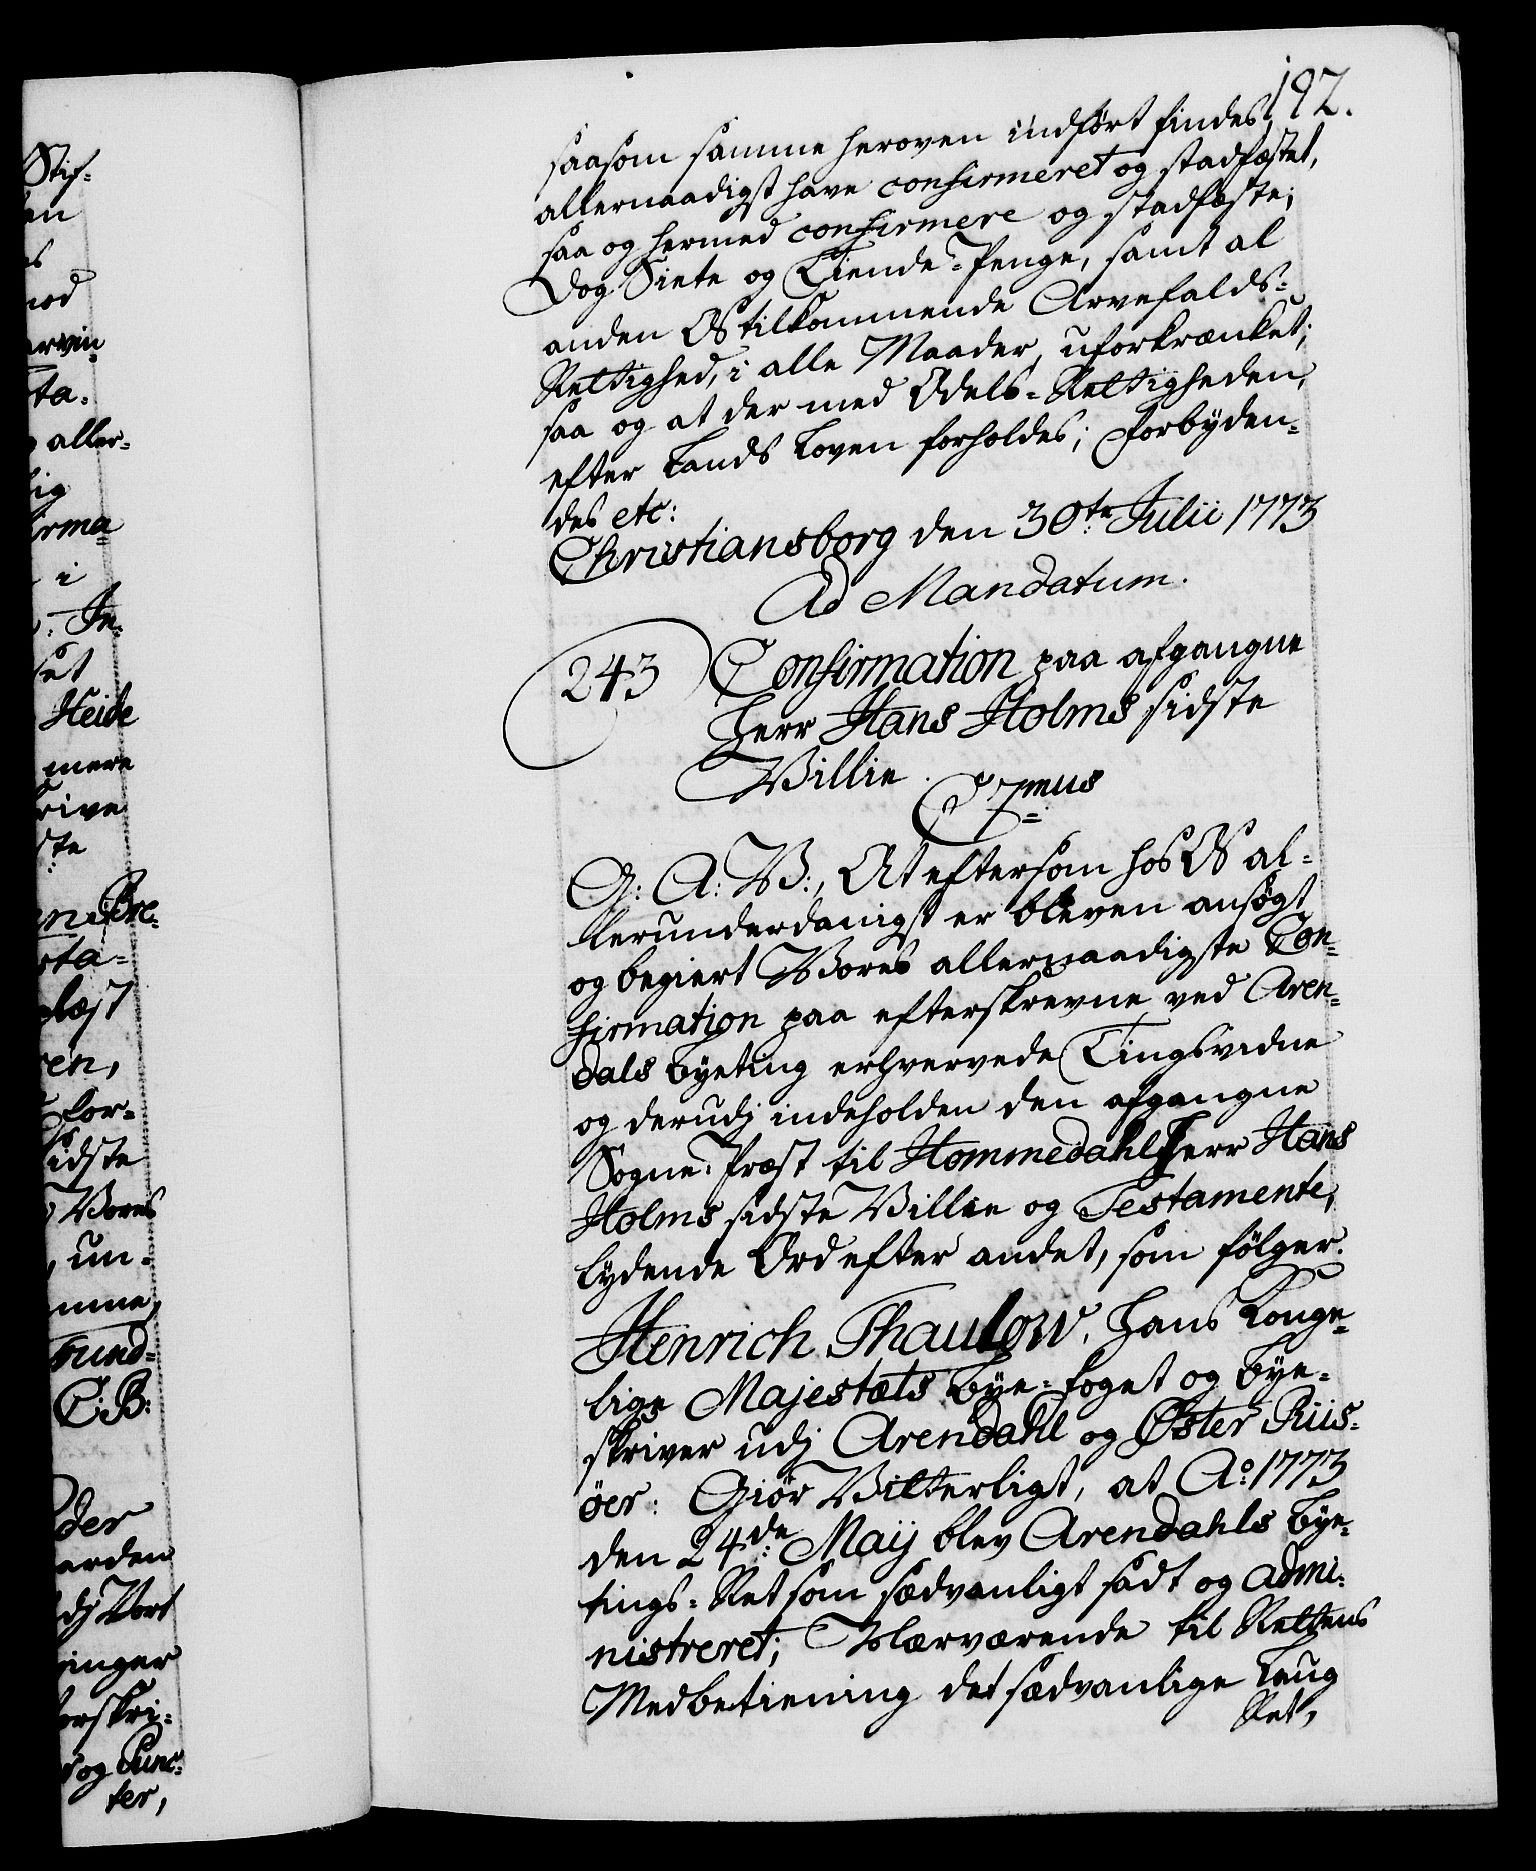 Stif-
en
s
nod
arvin
ta-
aller-
ig
irma
i
In-
set
Heide
mere
rive
dte
Bre-
sta-
læst
ren,
for-
idste
Vores
, un-
mme,
Fund-
C:B:
der
arden
dj Vort
inger
orskri-
og Punc-
ter,
192.
saasom samme heroven indført findes,
allernaadigst have confirmeret og stadfæstet,
saa og hermed confirmere og stadfæste;
Dog Siette og Tiende-Penge, samt al
anden Os tilkommende Arvefalds-
Rettighed, i alle Maader, uforkrænket;
saa og at der med Odels-Rettigheden,
efter Lands Loven forholdes; Forbyden-
des etc:
Christiansborg den 30te Julii 1773
Ad Mandatum.
243 Confirmation paa afgangne
Herr Hans Holms sidste
Villie.
C 7mus
G: A: V:, At eftersom hos Os al-
lerunderdanigst er bleven ansøgt
og begiert Vores allernaadigste Con-
firmation paa efterskrevne ved Aren-
dals Byeting erhvervede Tingsvidne
og derudj indeholden den afgangne
Sogne-Præst til Hommedahl Herr Hans
Holms sidste Villie og Testamente,
lydende Ord efter andet, som følger.
Henrich Thaulow, Hans Konge-
lige Majestæts Bye-Foget og Bye-
skriver udj Arendahl og Øster Riis-
öer: Giør Vitterligt, at Ao: 1773
den 24de: Maij blev Arendahls Bye-
tings-Ret som sædvanligt sadt og admi-
nistreret; Nærværende til Rettens
Medbetiening det sædvanlige Laug
Ret,